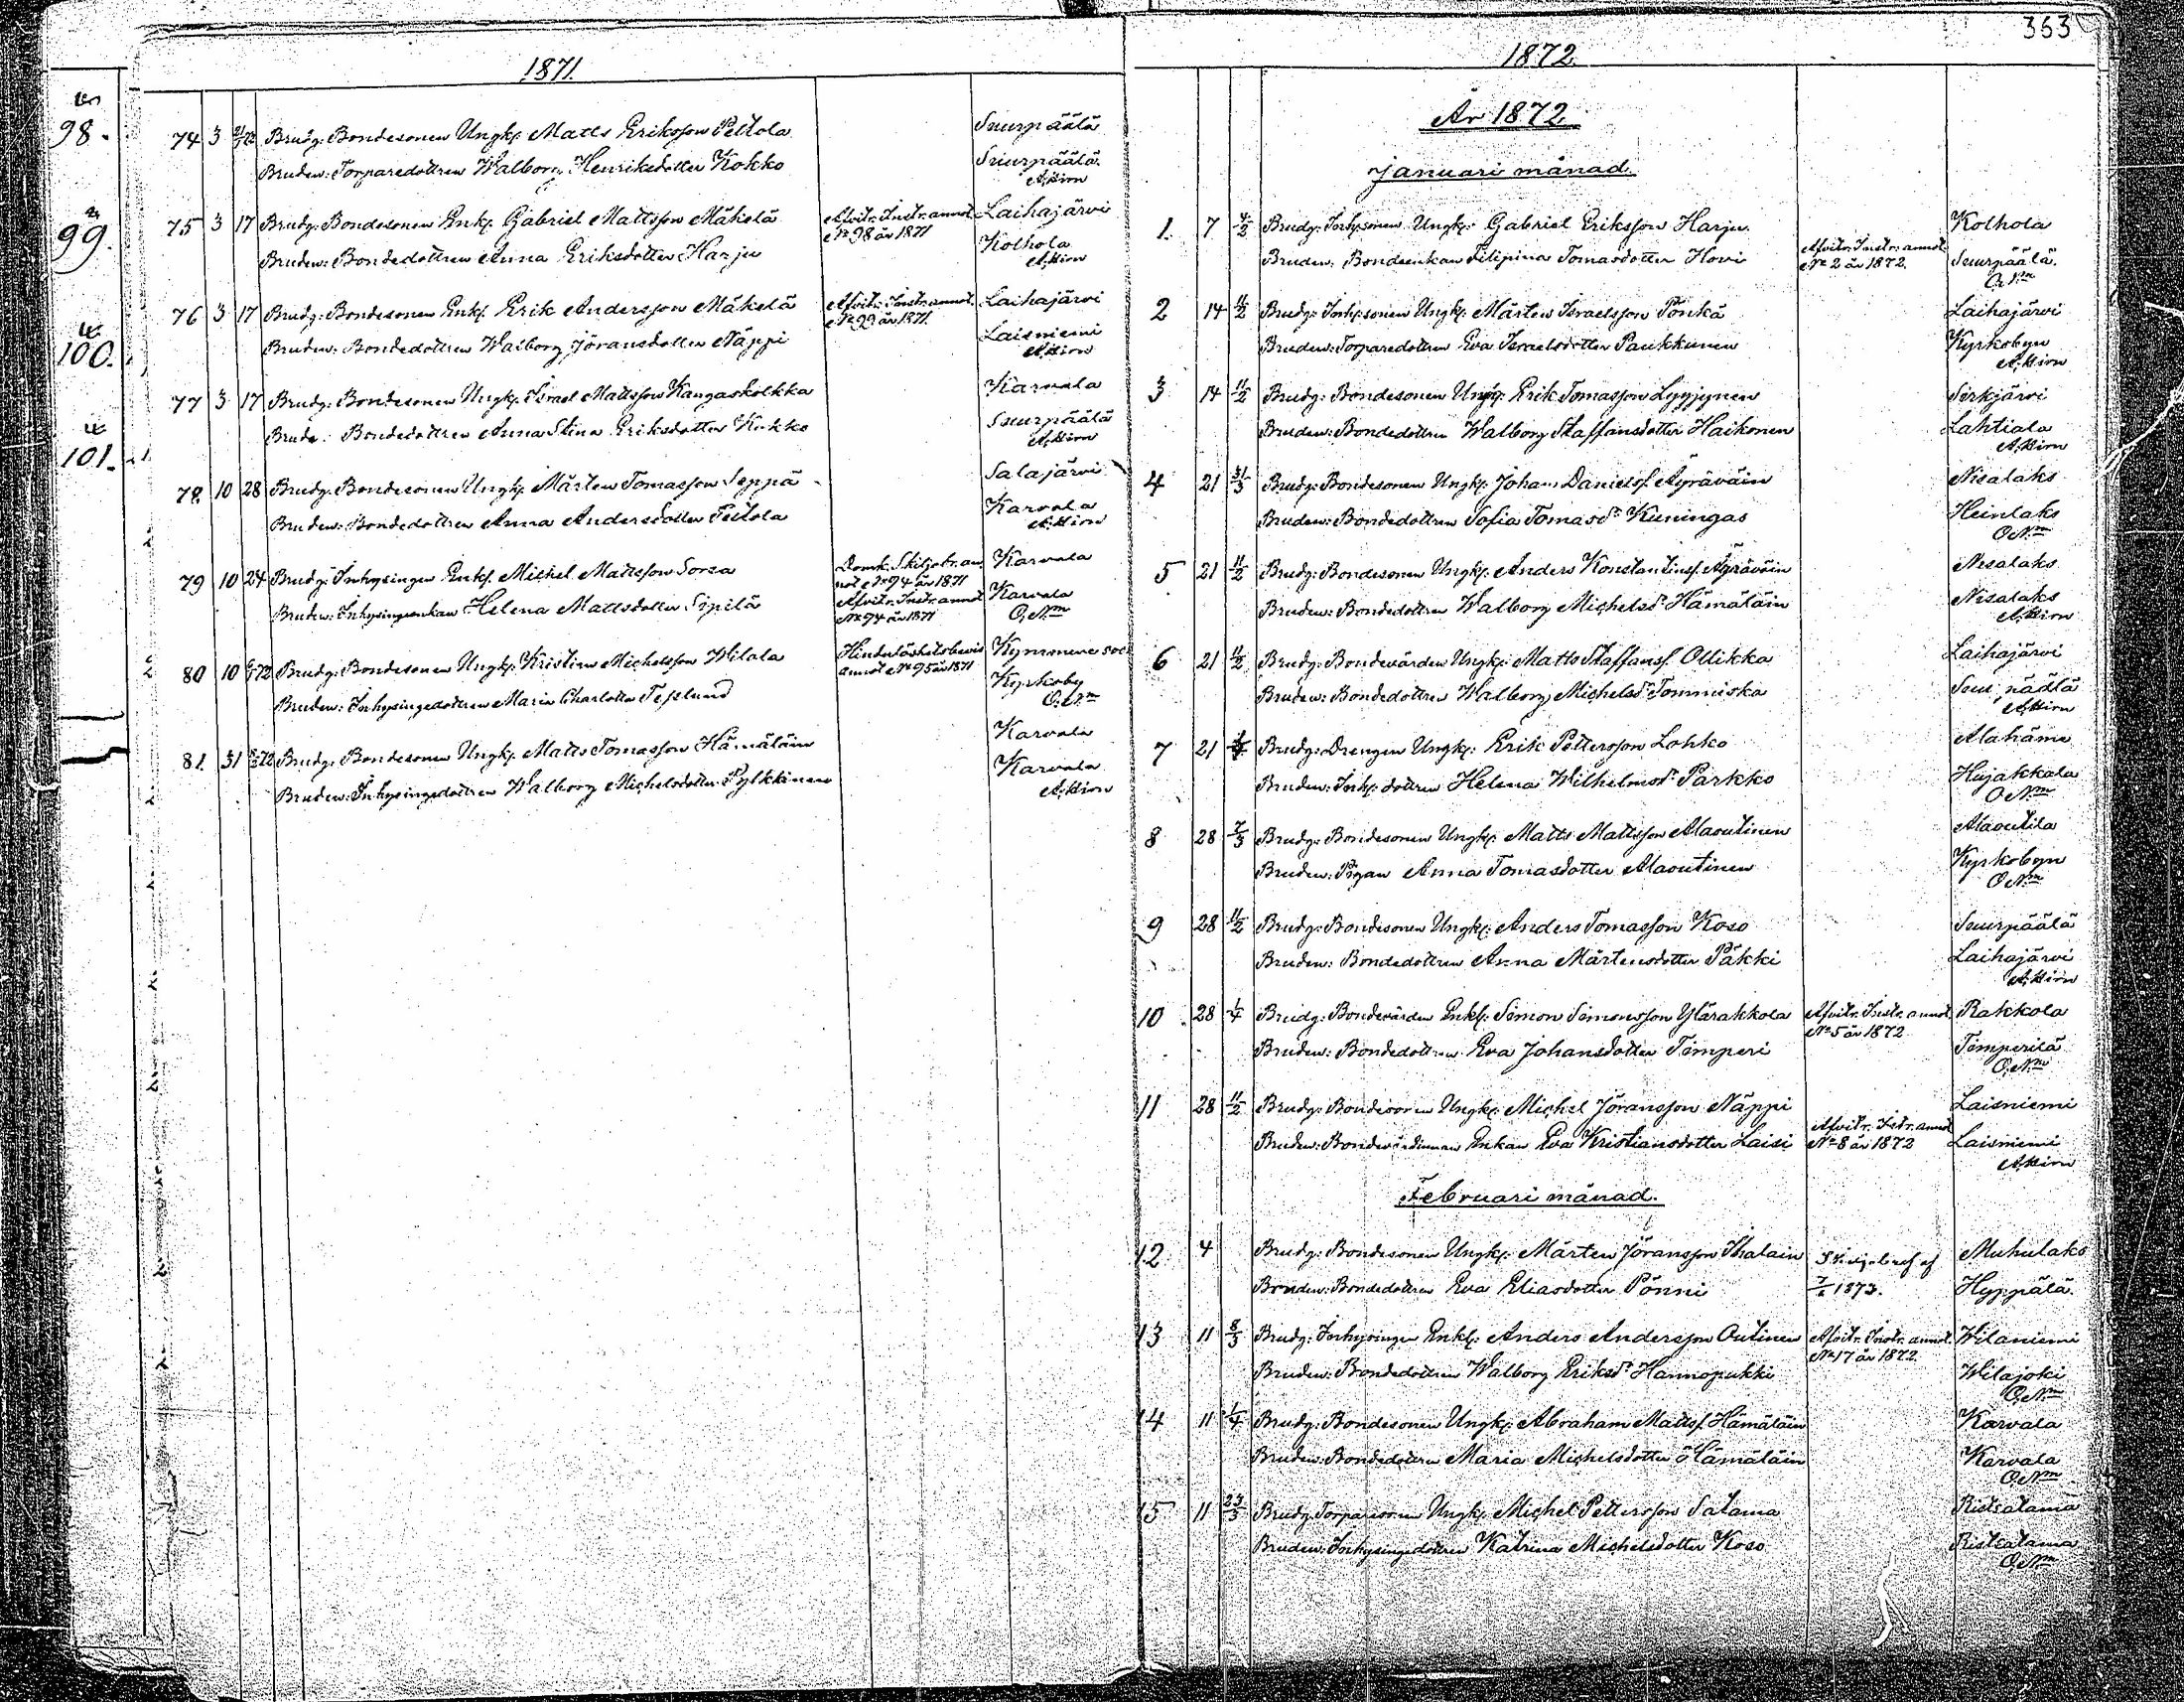 1871.
98.
99.
100.
101.
74 3 Brudg: Bondesonen Ungk. Matts Eriksson Peltola Suurpäälä
Bruden: Torparedottren Walborg Henriksdotter Kokko Suurpäälä
75 3 17 Brudg: Bondesonen Enkl. Gabriel Mattsson Mäkelä Afvitr. Instr. annot. Laihajärvi
No 98 år 1871
Bruden: Bondedottren Anna Eriksdotter Harju Kolhola
76 3 17 Brudg: Bondesonen Enkl. Erik Andersson Mäkelä Afvitr. Instr. annot. Laihajärvi
No 99 år 1871.
Bruden: Bondedottren Walborg Jöransdotter Näppi Laisniemi
77 3 17 Brudg: Bondesonen Ungk. Israel Mattsson Kangaskolkka Karvala
Brude. Bondedottren Anna Stina Eriksdotter Kokko Suurpäälä
78 10 28 Brudg: Bondesonen Ungk. Mårten Tomasson Seppä Salajärvi
Bruden: Bondedottren Anna Andersdotter Peltola Karvala
79 10 24 Brudg: Inhysingen Enkl. Michel Mattsson Sorsa Domk. Skiljobr. an- Karvala
not No 94 år 1871
Bruden: Inhysingsenkan Helena Mattsdotter Sipilä Afvitr. Instr. annot Karvala
No 94 år 1871 O.N:m
80 10 Brudg: Bondesonen Ungk. Kristian Michelsson Wilala Hinderlöshetsbevis Kymmene soc
annot No 95 år 1871
Bruden: Inhysingedottren Maria Charlotta Kyrkoby
O.N:m
81. 31 Brudg: Bondesonen Ungk. Matts Tomasson Hämäläin Karvala
Bruden: Inhysingedottren Walborg Michelsdotter Pylkkinen Karvala
353
1872.
År 1872.
Januari månad.
1. 7 4/2 Brudg: Inhys.sonen Ungk: Gabriel Eriksson Harju Kolhola
Bruden: Bondeenkan Filipina Tomasdotter Hovi Afvitr. Instr. annot Suurpäälä.
No 2 år 1872. O.N:m
2 14 11/2 Brudg: Inh.sonen Ungk: Mårten Israelsson Pönkä Laihajärvi
Bruden: Torparedottren Eva Israelsdotter Paukkunen Kyrkobyn
3 14 11/2 Brudg: Bondesonen Ungk: Erik Tomasson Lyyjynen Sirkjärvi
Bruden: Bondedottren Walborg Staffansdotter Haikonen Lahtiala
4 21 31/3 Brudg: Bondesonen Ungk: Johan Daniels. Äyräväin Nisalaks
Bruden: Bondedottren Sofia Tomasd:r Kuningas Heinlaks
O.N:m
5 21 11/2 Brudg: Bondesonen Ungk: Anders Konstantins. Äyräväin Nisalaks
Bruden: Bondedottren Walborg Michelsd:r Hämäläin Nisalaks
6 21 11/2 Brudg: Bondevärden Ungk: Matts Staffans. Ollikka Laihajärvi
Bruden: Bondedottren Walborg Michelsd:r Tommiska
7 21 Brudg: Drengen Ungk: Erik Pettersson Lohko Alahäme
Bruden: Inh. dottren Helena Wilhelmsd:r Parkko Hujakkala
O.N:m
8 28 7/3 Brudg: Bondesonen Ungk: Matts Mattsson Alaoutinen Alaoutila
Bruden: Pigan Anna Tomasdotter Alaoutinen Kyrkobyn
O.N:m
9 28 11/2 Brudg: Bondesonen Ungk: Anders Tomasson Koso Suurpäälä
Bruden: Bondedottren Anna Mårtensdotter Päkki Laihajärvi
10 28 1/4 Brudg: Bondevärden Enkl: Simon Simonsson Ylärakkola Afvitr. Instr. annot. Rakkola
No 5 år 1872
Bruden: Bondedottren Eva Johansdotter Timperi Timperilä
O.N:m
11 28 11/2 Brudg: Bondesonen Ungk: Michel Jöransson Näppi Laisniemi
Bruden: Bondevärdinnan Enkan Eva Kristiansdotter Laisi Afvitr. Instr. annot Laisniemi
No 8 år 1872
Februari månad.
12 4 Brudg: Bondesonen Ungk: Mårten Jöransson Ihalain Muhulaks
Bruden: Bondedottren Eva Eliasdotter Pönni 1873. Hyppälä.
13 11 8/3 Brudg: Inhysingen Enkl: Anders Andersson Outinen Afvitr. Instr. annot. Wilaniemi
No 17 år 1872.
Bruden: Bondedottren Walborg Eriksd:r Hannopukki Wilajoki
O.N:m
14 11 1/4 Brudg: Bondesonen Ungk: Abraham Matts. Hämäläin Karvala
Bruden: Bondedottren Maria Michelsdotter Hämäläin Karvala
O.N:m
15 11 23/3 Brudg: Torparesonen Ungk: Michel Pettersson Satama Ristsatama
Bruden: Inhysingedottren Katrina Michelsdotter Koso Ristsatama
O.N:m